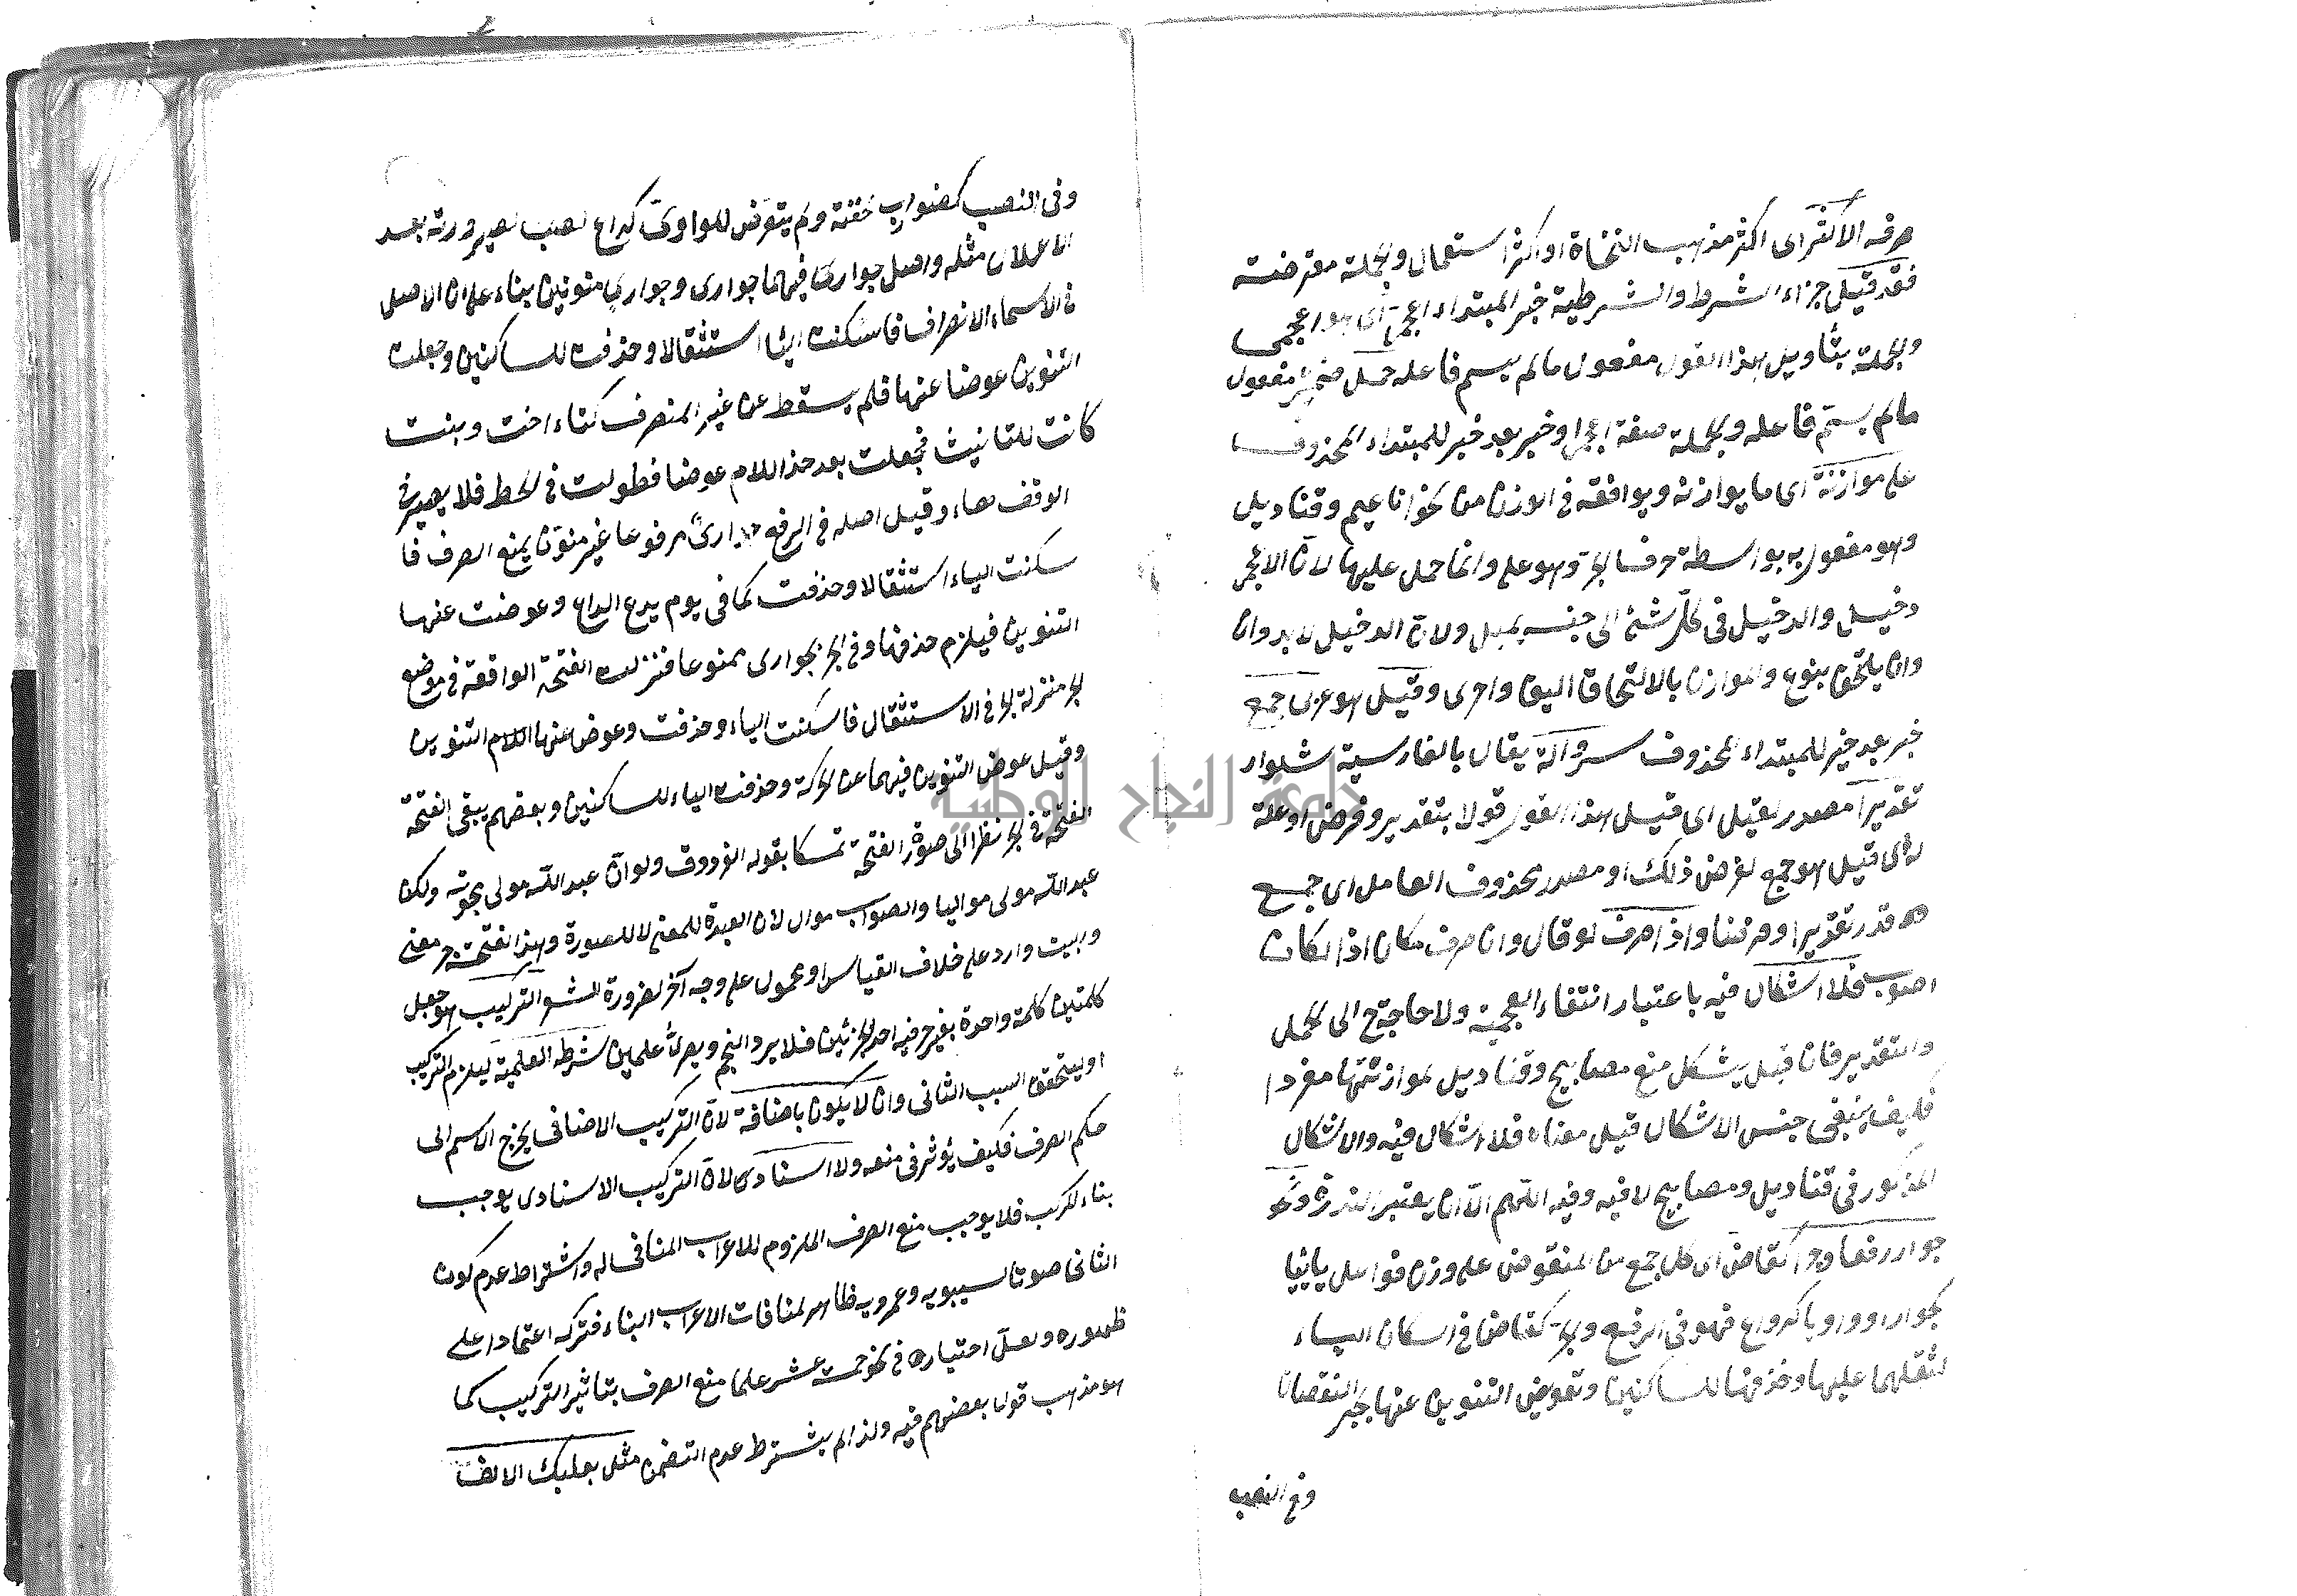 صرفه الاكثر اى اكثر مذهب النحاة او اكثر استعمال والجملة معترضة
فقد قيل جزاء الشرط والشرطية خبر المبتداء اعجمى اى هو اعجمى
والجملة بتأويل هذا القول مفعول مالم يسم فاعله حمل مفعول
مالم يسم فاعله والجملة صفة اعجمى او خبر بعد خبر للمبتداء المحذوف
على موازنة اى ما يوازنه ويوافقه فى الوزن من نحو اناعيم وقناديل
وهو مفعول به بواسطة حرف الجر وهو على وانما حمل عليها لان الاعجمى
دخيل والدخيل فى كل شئ الى جنسه يميل ولان الدخيل لابد وان
وان يلتحق بنوع والموازن بالالتحاق اليق واحرى وقيل هو عربى جمع
خبر بعد خبر للمبتداء المحذوف سروالة يقال بالفارسية شلوار
تقديرا مصدر لقيل اى قيل هذا القول قولا بتقدير وفرض او علة
اى قيل هو جمع لفرض ذلك او مصدر محذوف العامل اى جمع
قدر تقديرا وفرضنا واذا صرف لو قال وان صرف مكان اذا لكان
اصوب فلا اشكال فيه باعتبار انتفاء العجمة ولا حاجة الى الحمل
والتقدير فان قيل يشكل منع مصابيح وقناديل لموازنتها مفردا
فكيف ينفى جنس الاشكال قيل معناه فلا اشكال فيه والاشكال
المذكور فى قناديل ومصابيح لا فيه وفيه اللهم الا ان يعتبر الندرة ونحو
جوار رفعا وجرا كقاض اى كل جمع من المنقوص على وزن فواعل يائيا
كجوار او واويا كدواع فهو فى الرفع والجر كقاض فى اسكان الياء
لثقلهما عليها وحذفها للساكنين وتعويض التنوين عنها جبر النقصان
وفى النصب
وفى النصب كضوارب خفته ولم يتعرض للواوى كداع نصب لصيرورته بعد
الاعلال مثله واصل جوار فيهما جوارى وجوارى منونين بناء على ان الاصل
فى الاسماء الانصراف فاسكنت الياء استثقالا وحذفت للساكنين وجعلت
التنوين عوضا عنها فلم يسقط عن غير المنصرف كتاء اخت وبنت
كانت للتانيث فجعلت بعد حذ اللام عوضا فطولت فى الخط فلا يصير فى
الوقف هاء وقيل اصله فى الرفع جوارى مرفوعا غير منون بمنع الصرف فا
سكنت الياء استثقالا وحذفت كما فى يوم يدع الداع وعوضت عنها
التنوين فيلزم حذفها وفى الجر بجوارى ممنوعا فنزلت الفتحة الواقعة فى موضع
الجر منزلة الجر فى الاستثقال فاسكنت الياء وحذفت وعوض عنها اللام التنوين
وقيل عوض التنوين فيهما عن الحركة وحذفت الياء للساكنين وبعضهم يبقى الفتحة
الفتحة فى الجر نظرا الى صورة الفتحة تمسكا بقوله الفرزدق ولو ان عبد الله مولى هجوته ولكن
عبد الله مولى مواليا والصواب موال لان العبرة للمعنى لا للصورة وهذا الفتحة جر معنى
والبيت وارد على خلاف القياس او محمول على وجه آخر لضرورة الشعر التركيب هو جعل
كلمتين كلمة واحدة بغير حرفية احد الجزئين فلا يرد النجم وبصرى علمين شرطه العلمية ليلزم التركيب
او يتحقق السبب الثانى وان لا يكون باضافة لان التركيب الاضافى يخرج الاسم الى
حكم الصرف فكيف يؤثر فى منعه ولا اسنادى لان التركيب الاسنادى يوجب
بناء المركب فلا يوجب منع الصرف الملزوم للاعراب المنافى له واشتراط عدم كون
الثانى صوتا كسيبويه وعمرويه ظاهر لمنافات الاعراب البناء فتركه اعتمادا على
ظهوره ولعل اختياره فى نحو خمسة عشر علما منع الصرف بتاثير التركيب كما
هو مذهب قول بعضهم فيه ولذا لم يشترط عدم التضمن مثل بعلبك الالف
جامعة النجاح الوطنية